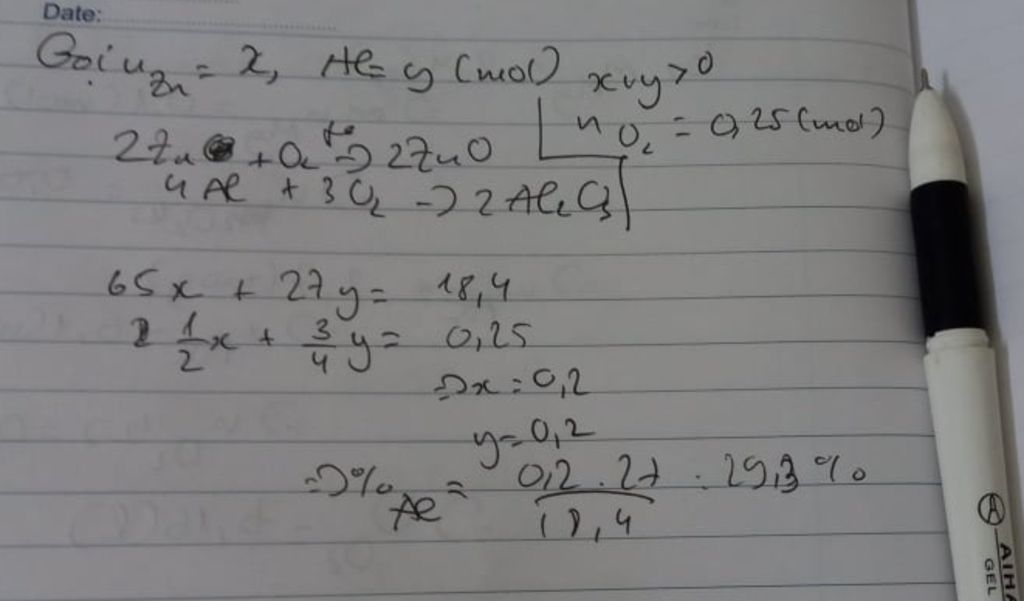 Date:
Gọi n Zn = x, Al = y (mol) x v y > 0
n O2 = 0,25 (mol)
2Zn + O2 t° → 2ZnO
4Al + 3O2 → 2Al2O3
65x + 27y = 18,4
1/2 x + 3/4 y = 0,25
=> x = 0,2
y = 0,2
=> % Al = 0,2 . 27 / 18,4 = 29,3 %
A AIHA
GEL